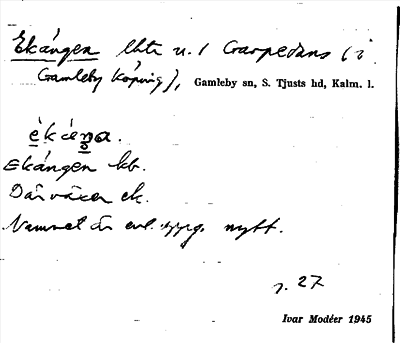 Ekängen lht u. / Garpedans (i
Gamleby köping), Gamleby sn, S. Tjusts hd, Kalm. l.
Ekängen kb.
Där växer ek.
Namnet är enl. uppg. nytt.
s. 27
Ivar Modéer 1945